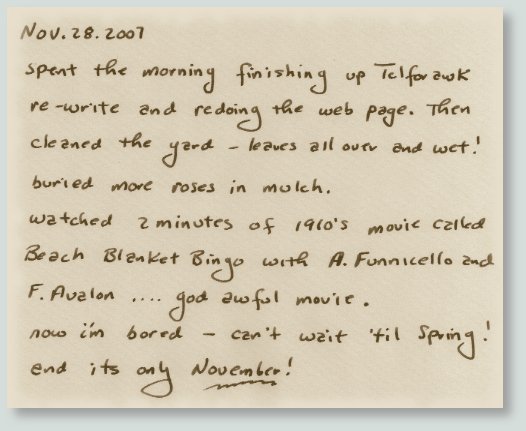 Nov. 28. 2007
spent the morning finishing up Telforawk
re-write and redoing the web page. Then
cleaned the yard - leaves all over and wet!
buried more roses in mulch.
watched 2 minutes of 1960's movie called
Beach Blanket Bingo with A. Funnicello and
F. Avalon .... god awful movie.
now i'm bored - can't wait 'til Spring!
and its only November!